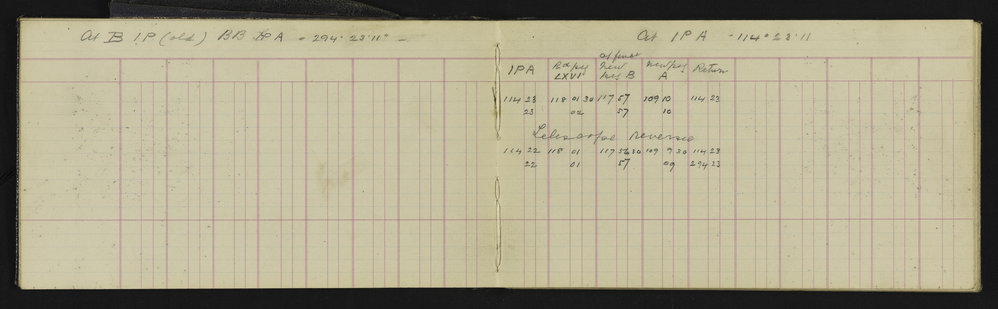 At B IP (old) BB IP A = 294° 23' 11"
At IP A - 114° 23' 11
IPA Rd peg LXVI at fence New peg B New peg A Return
114 23 118 01 30 117 57 109 10 114 23
23 02 57 10
Telescope reverse
114 22 118 01 117 56 30 109 9 30 114 23
22 01 57 09 294 23